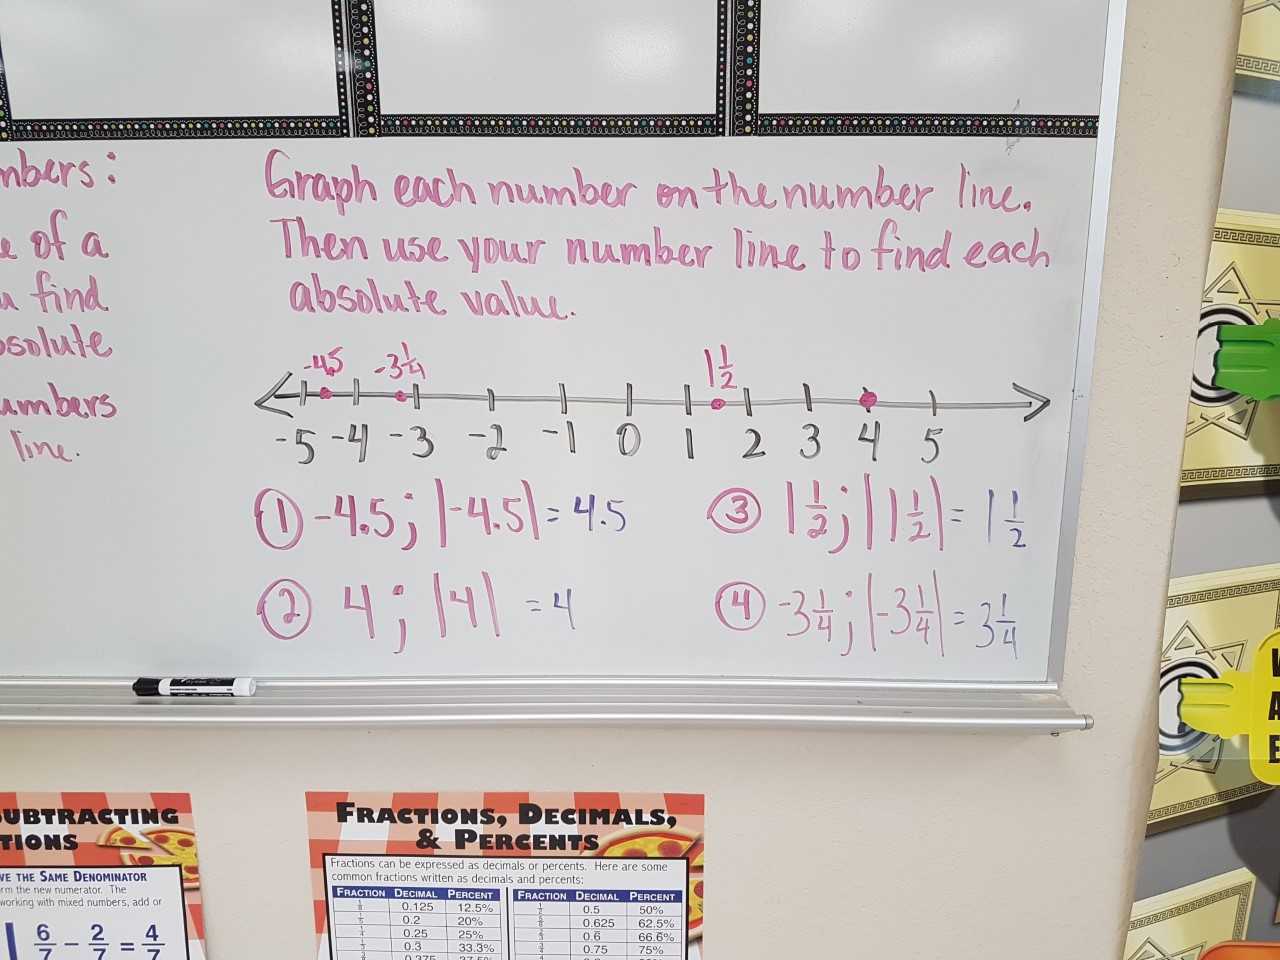 mbers:
e of a
find
solute
umbers
line.
Graph each number on the number line.
Then use your number line to find each
absolute value.
-4.5 -3 1/4 1 1/2
-5 -4 -3 -2 -1 0 1 2 3 4 5
① -4.5; |-4.5| = 4.5
③ 1 1/2; |1 1/2| = 1 1/2
② 4; |4| = 4
④ -3 1/4; |-3 1/4| = 3 1/4
UBTRACTING
TIONS
VE THE SAME DENOMINATOR
rm the new numerator. The
working with mixed numbers, add or
6/7 - 2/7 = 4/7
FRACTIONS, DECIMALS,
& PERCENTS
Fractions can be expressed as decimals or percents. Here are some
common fractions written as decimals and percents:
FRACTION DECIMAL PERCENT FRACTION DECIMAL PERCENT
1/8 0.125 12.5% 1/2 0.5 50%
1/5 0.2 20% 5/8 0.625 62.5%
1/4 0.25 25% 2/3 0.6 66.6%
1/3 0.3 33.3% 3/4 0.75 75%
0.375 37.5%
W
A
E